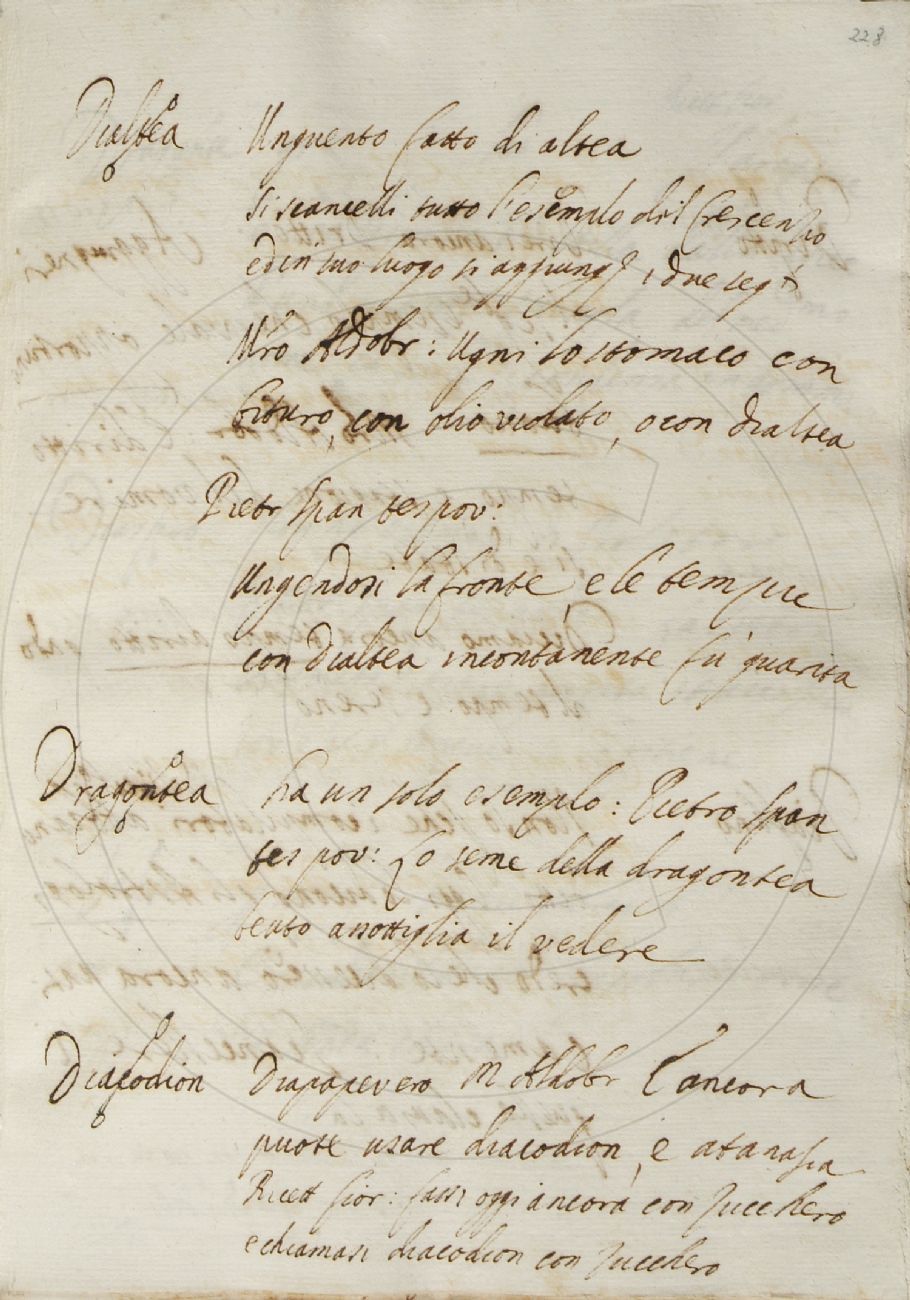 228
Dialtea Unguento fatto di altea
Si scancelli tutto l'esemplo del Crescenzio
ed in suo luogo si aggiung i due seg.ti
Mrõ Aldobr: Ugni lo stomaco con
bituro, con olio violato, o con dialtea
Pietr Span tes pov:
Ungendosi la fronte, e le tempie
con dialtea incontanente fu guarita
Dragontea ha un solo esemplo: Pietro Span
tes pov: Lo seme della dragontea
beuto assottiglia il vedere
Diacodion Diapapevero M Aldobr E ancora
puote usare diacodion, e atanasia
Ricett fior: fassi oggi ancora con zucchero
e chiamasi diacodion con zucchero